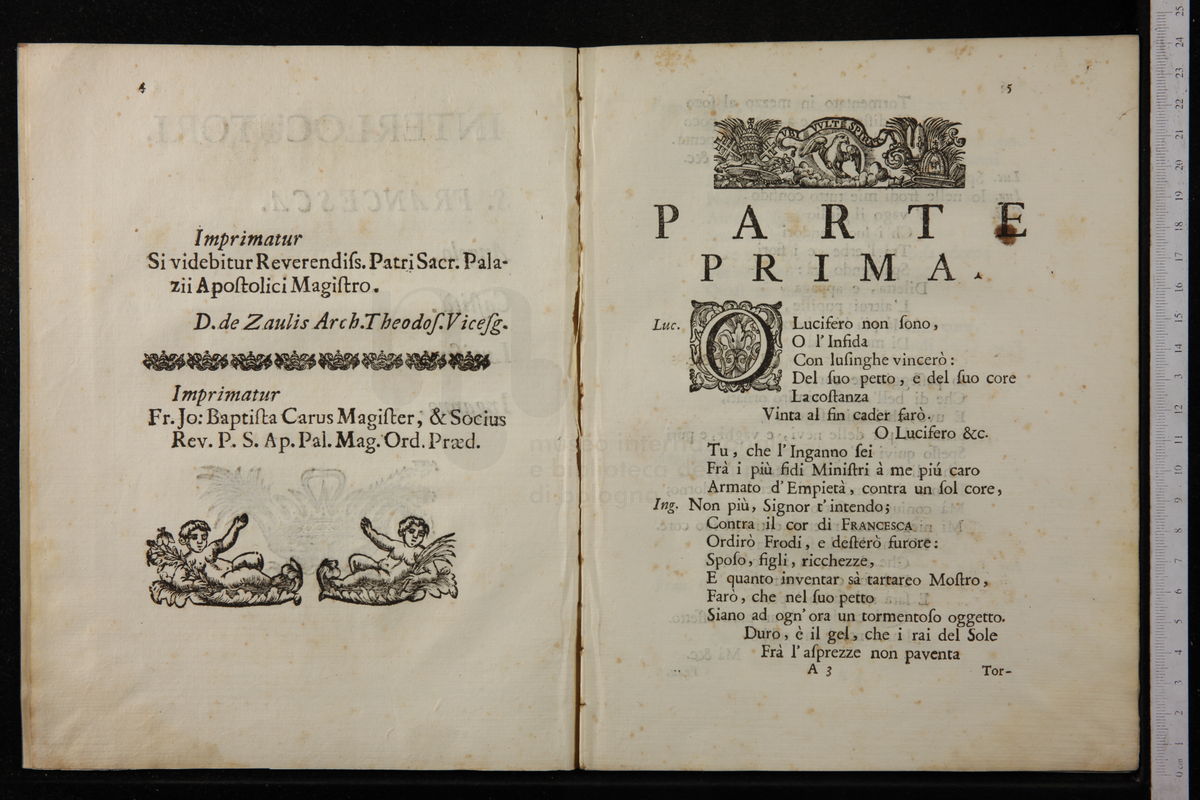 4
Imprimatur
Si videbitur Reverendiſs. Patri Sacr. Pala-
zii Apoſtolici Magiſtro.
D. de Zaulis Arch. Theodoſ. Viceſg.
Imprimatur
Fr. Jo: Baptiſta Carus Magiſter, & Socius
Rev. P. S. Ap. Pal. Mag. Ord. Præd.
5
PARTE
PRIMA.
Luc. O Lucifero non ſono,
O l'Infida
Con luſinghe vincerò:
Del ſuo petto, e del ſuo core
La coſtanza
Vinta al fin cader farò.
O Lucifero &c.
Tu, che l'Inganno ſei
Frà i più fidi Miniſtri à me piú caro
Armato d'Empietà, contra un ſol core,
Ing. Non più, Signor t'intendo;
Contra il cor di FRANCESCA
Ordirò Frodi, e deſterò furore:
Spoſo, figli, ricchezze,
E quanto inventar sà tartareo Moſtro,
Farò, che nel ſuo petto
Siano ad ogn'ora un tormentoſo oggetto.
Duro, è il gel, che i rai del Sole
Frà l'aſprezze non paventa
A 3
Tor-